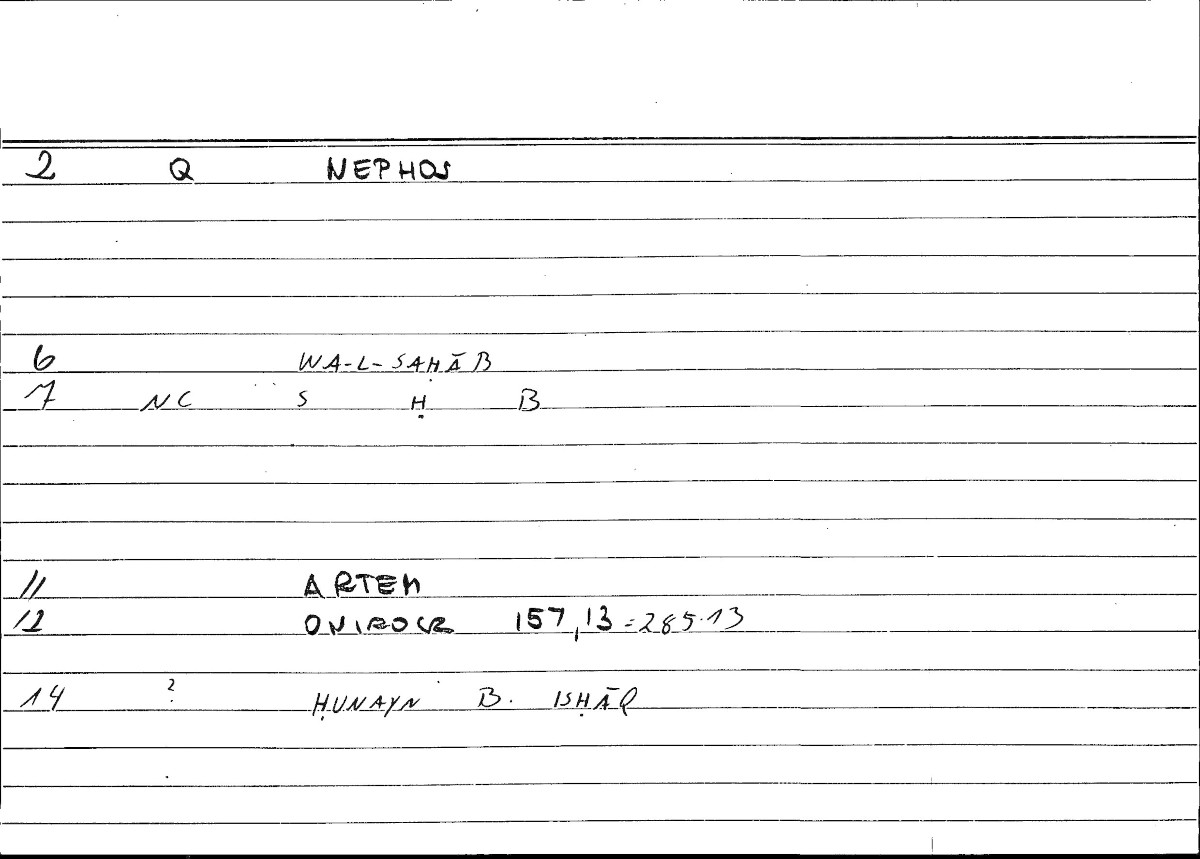 2 Q NEPHOS
6 WA-L-SAḤĀB
7 NC S Ḥ B
11 ARTEM
12 ONIROCR 157,13 = 285.13
14 ? ḤUNAYN B. ISḤĀQ